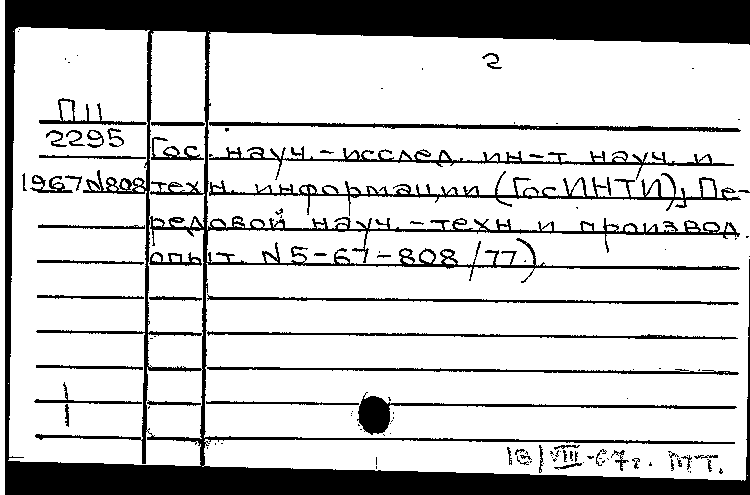 2
П11
2295 Гос. науч.-исслед. ин-т науч. и
1967 N808 техн. информации (ГосИНТИ); Пе-
редовой науч.-техн. и производ.
опыт. N5-67-808/77).
18/VIII-67г. МТ.